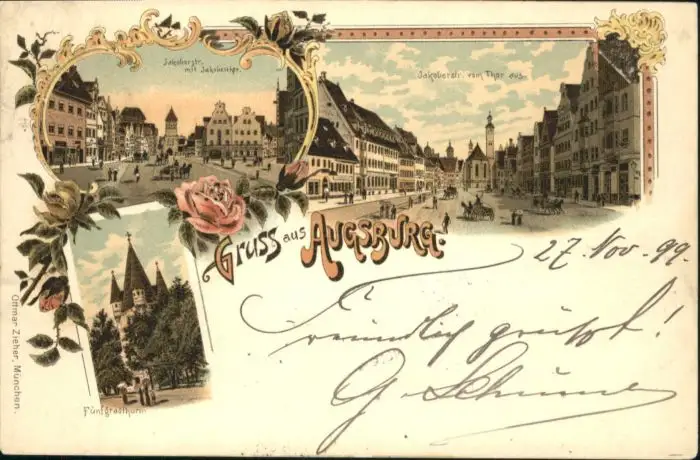 Jakoberstr.
mit Jakoberthor.
Jakoberstr. vom Thor aus.
Gruss aus Augsburg.
27. Nov. 99.
Freundlich grüsst!
G.
Fünfgratthurm
Ottmar Zieher, München.